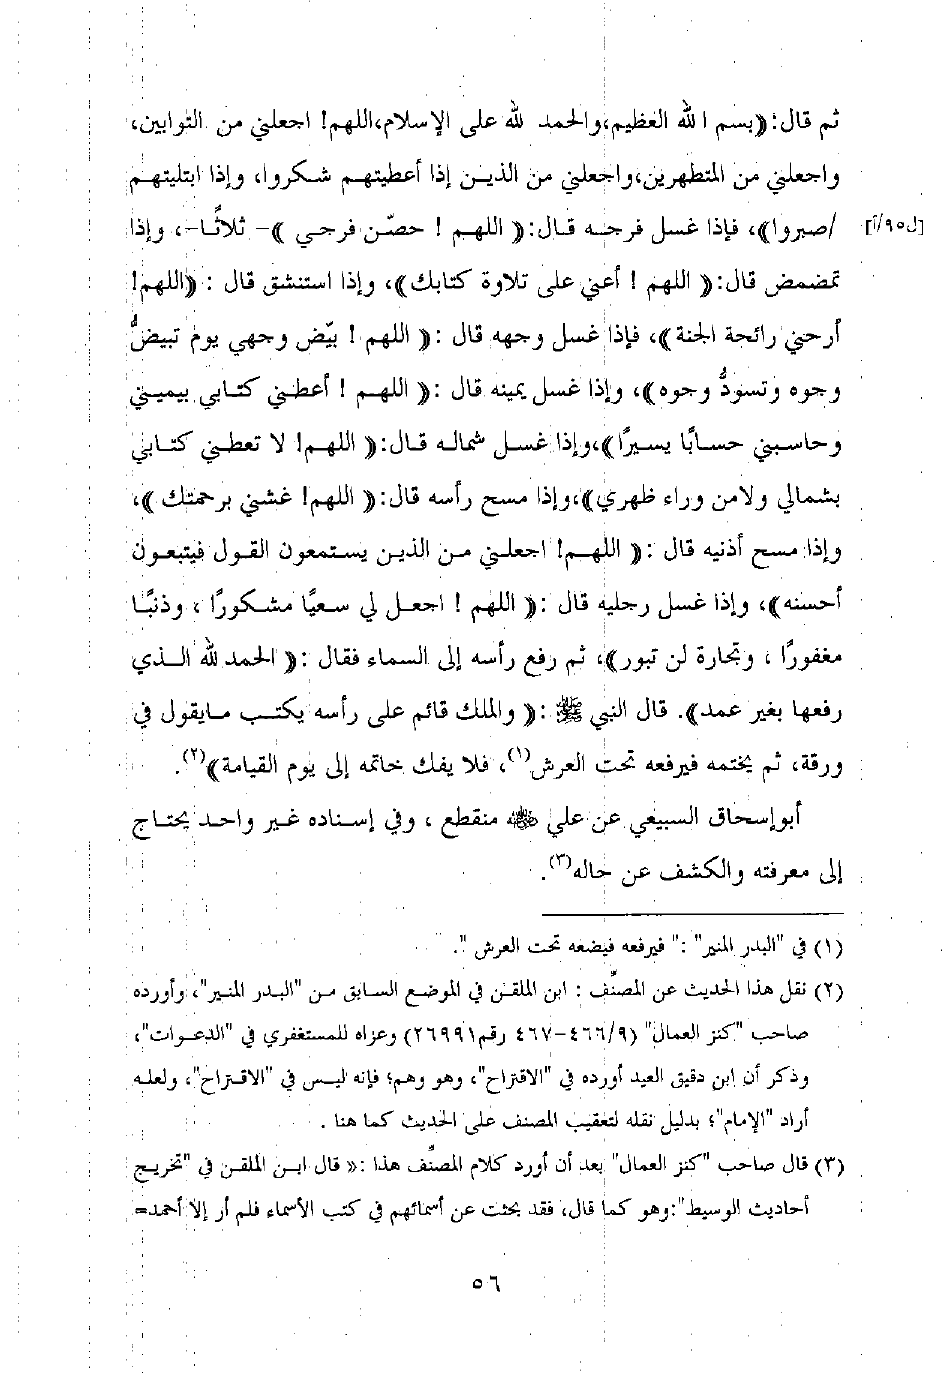 ثم قال:((بسم الله العظيم،والحمد لله على الإسلام،اللهم! اجعلني من التوابين،
واجعلني من المتطهرين،واجعلني من الذين إذا أعطيتهم شكروا، وإذا ابتليتهم
/صبروا))، فإذا غسل فرجه قال:(( اللهم ! حصّن فرجي ))- ثلاثًا-، وإذا [ل٩٥/أ]
تمضمض قال:(( اللهم ! أعني على تلاوة كتابك))، وإذا استنشق قال : ((اللهم!
أرحني رائحة الجنة))، فإذا غسل وجهه قال :(( اللهم ! بيّض وجهي يوم تبيضُّ
وجوه وتسودُّ وجوه))، وإذا غسل يمينه قال :(( اللهم ! أعطني كتابي بيميني
وحاسبني حسابًا يسيرًا))،وإذا غسل شماله قال:(( اللهم! لا تعطني كتابي
بشمالي ولامن وراء ظهري))،وإذا مسح رأسه قال:(( اللهم! غشني برحمتك ))،
وإذا مسح أذنيه قال :(( اللهم! اجعلني من الذين يستمعون القول فيتبعون
أحسنه))، وإذا غسل رجليه قال :(( اللهم ! اجعل لي سعيًا مشكورًا ، وذنبًا
مغفورًا ، وتجارة لن تبور))، ثم رفع رأسه إلى السماء فقال :(( الحمد لله الذي
رفعها بغير عمد)). قال النبي ﷺ :(( والملك قائم على رأسه يكتب مايقول في
ورقة، ثم يختمه فيرفعه تحت العرش(١)، فلا يفك خاتمه إلى يوم القيامة))(٢).
أبوإسحاق السبيعي عن علي ﷺ منقطع ، وفي إسناده غير واحد يحتاج
إلى معرفته والكشف عن حاله(٣).
(١) في "البدر المنير" :" فيرفعه فيضعه تحت العرش ".
(٢) نقل هذا الحديث عن المصنِّف : ابن الملقن في الموضع السابق من "البدر المنير"، وأورده
صاحب "كنز العمال" (٤٦٦/٩-٤٦٧ رقم٢٦٩٩١) وعزاه للمستغفري في "الدعوات"،
وذكر أن ابن دقيق العيد أورده في "الاقتراح"، وهو وهم؛ فإنه ليس في "الاقتراح"، ولعله
أراد "الإمام"؛ بدليل نقله لتعقيب المصنف على الحديث كما هنا .
(٣) قال صاحب "كنز العمال" بعد أن أورد كلام المصنِّف هذا :(( قال ابن الملقن في "تخريج
أحاديث الوسيط":وهو كما قال، فقد بحثت عن أسمائهم في كتب الأسماء فلم أر إلا أحمد=
٥٦